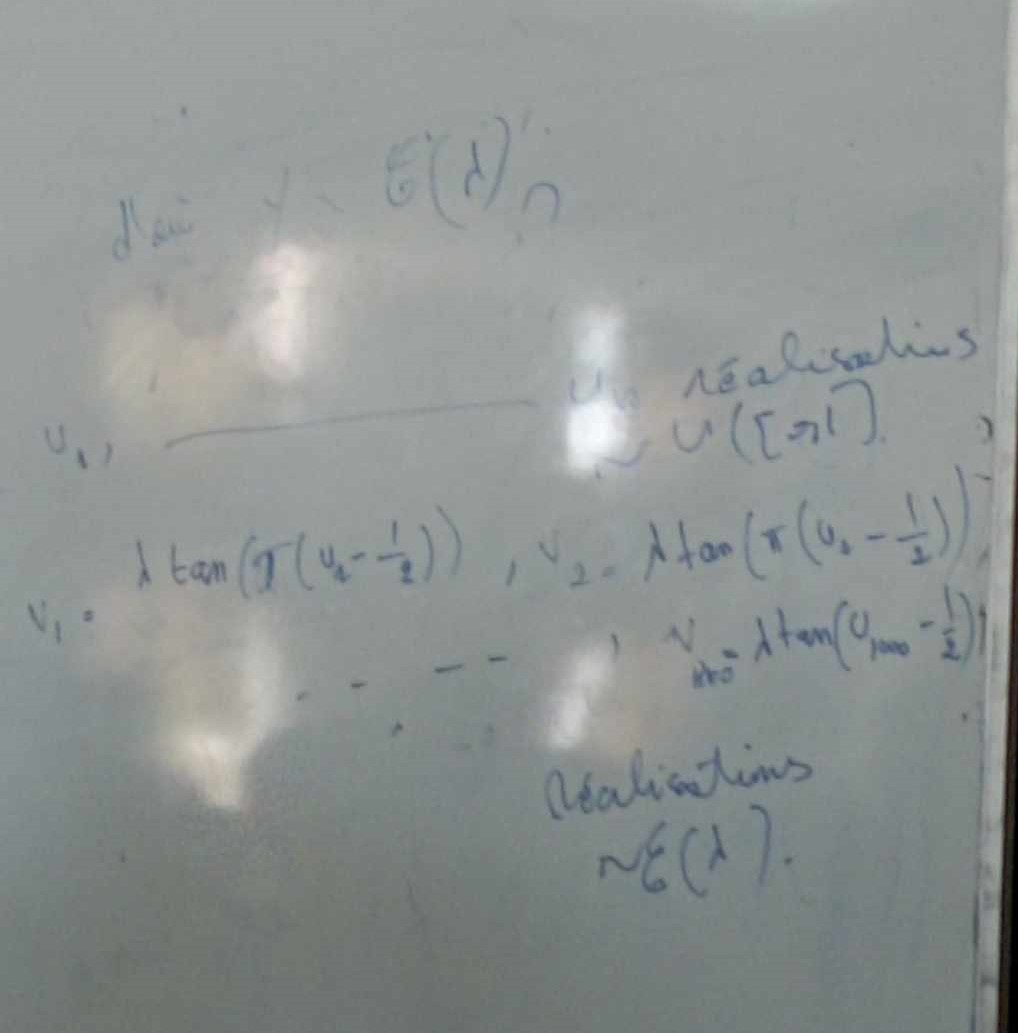 d'où Y ~ E(λ)
u₁, ———— réalisations
~ U([0,1]).
V₁ = λ tan(π(u₁ - 1/2)), V₂ = λ tan(π(u₂ - 1/2))
. . - - - , V₁₀₀₀ = λ tan(U₁₀₀₀ - 1/2),
réalisations
~ E(λ).